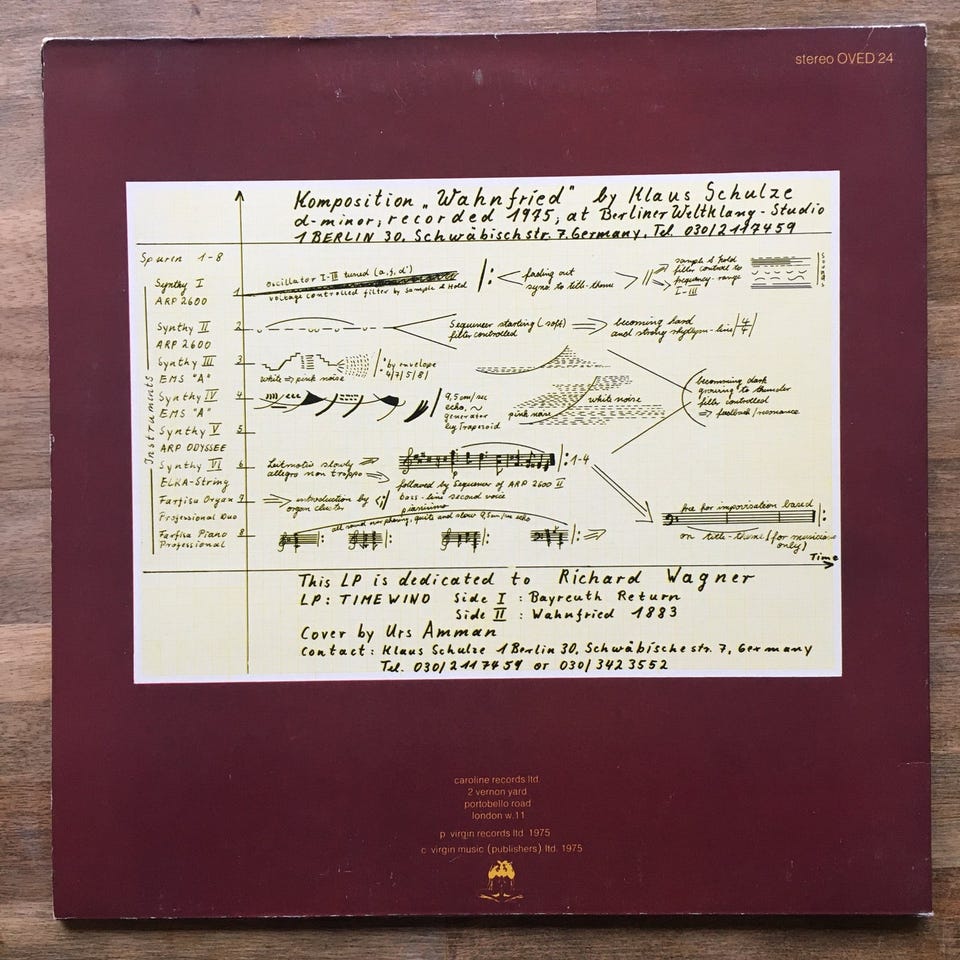 stereo OVED 24
Komposition „Wahnfried" by Klaus Schulze
d-minor; recorded 1975, at Berliner Weltklang-Studio
1 BERLIN 30, Schwäbischstr. 7, Germany, Tel. 030/2117459
Spuren 1-8
Instruments
Synthy I
ARP 2600
Synthy II
ARP 2600
Synthy III
EMS "A"
Synthy IV
EMS "A"
Synthy V
ARP ODYSSEE
Synthy VI
ELKA-String
Farfisa Organ
Professional Duo
Farfisa Piano
Professional
1
2
3
4
5
6
7
8
Oscillator I-III tuned (a, f, d')
voltage controlled filter by Sample & Hold
fading out
sync to title-theme
sample & hold
filter control to
frequency-range
I-III
Sounds
Sequencer starting (soft)
filter controlled
becoming hard
and strong rhythm-line
4/4
white ⇒ pink noise
by envelope
4/7/5/8/
9,5 cm/sec
echo, ~
generator
by Trapezoid
pink noise
white noise
becomming dark
growing to thunder
filter controlled
⇒ feedback/resonance
Leitmotiv slowly
allegro non troppo
1-4
followed by Sequencer of ARP 2600 II
bass-line second voice
introduction by
organ cluster
pianissimo
all sound on phasing, quite and slow 9,5 cm/sec echo
free for improvisation based
on title-theme (for musicians
only)
Time
This LP is dedicated to Richard Wagner
LP: TIMEWIND Side I : Bayreuth Return
Side II : Wahnfried 1883
Cover by Urs Amman
Contact: Klaus Schulze 1 Berlin 30, Schwäbische str. 7, Germany
Tel. 030/2117459 or 030/3423552
caroline records ltd.
2 vernon yard
portobello road
london w.11
p virgin records ltd 1975
c virgin music (publishers) ltd. 1975